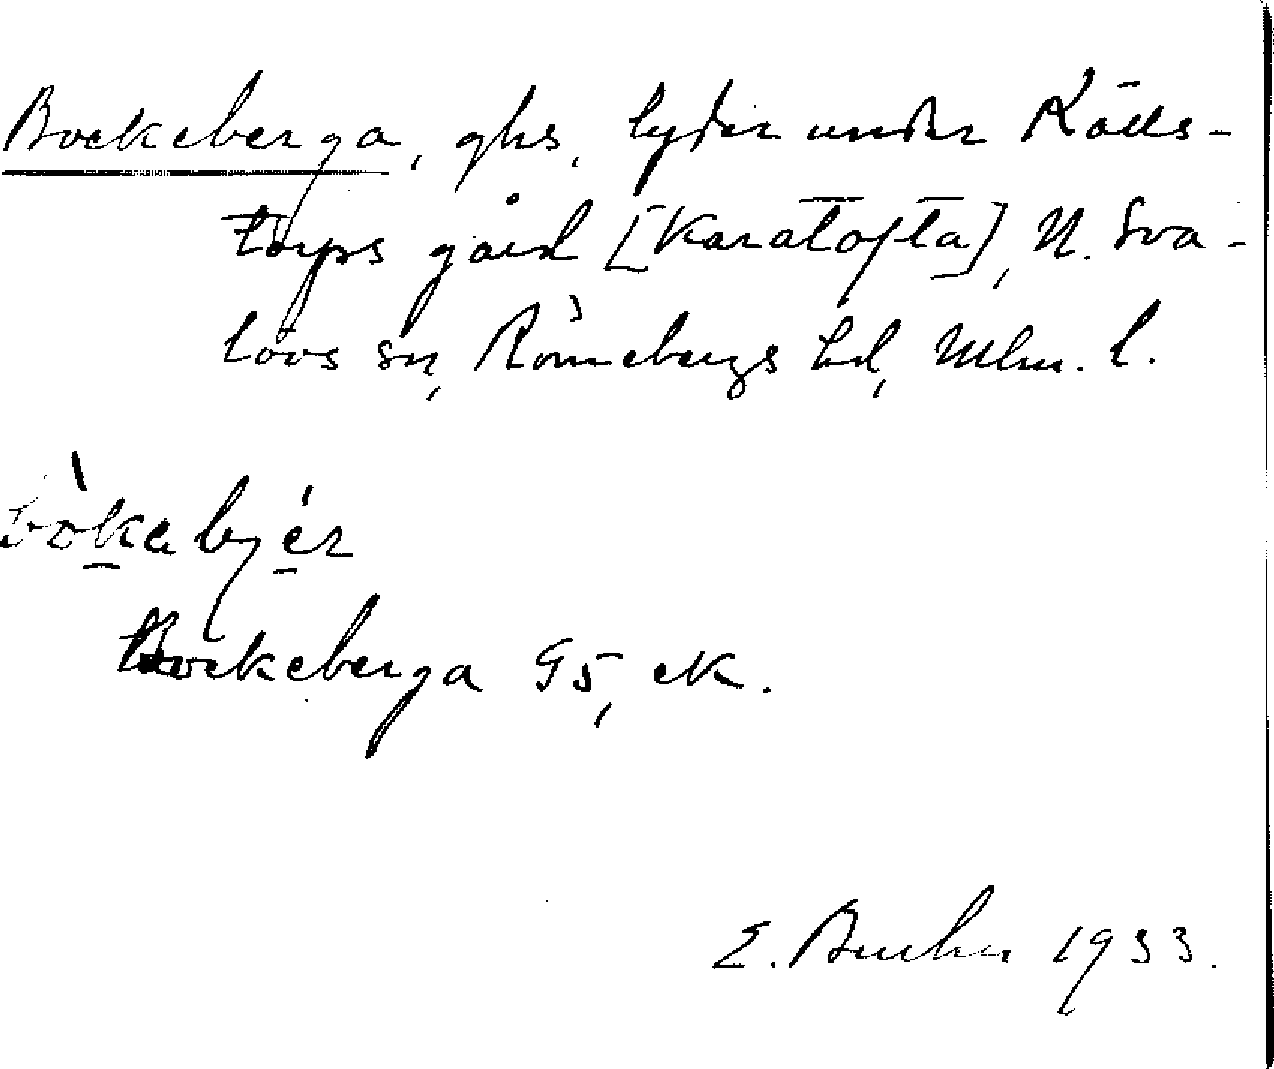 Bockeberga, ghs, lyder under Källs-
torps gård [Karatofta], N. Sva-
lövs sn, Rönnebergs hd, Mlm. l.
bòkabjér
Bockeberga 95, ek.
E. 1933.